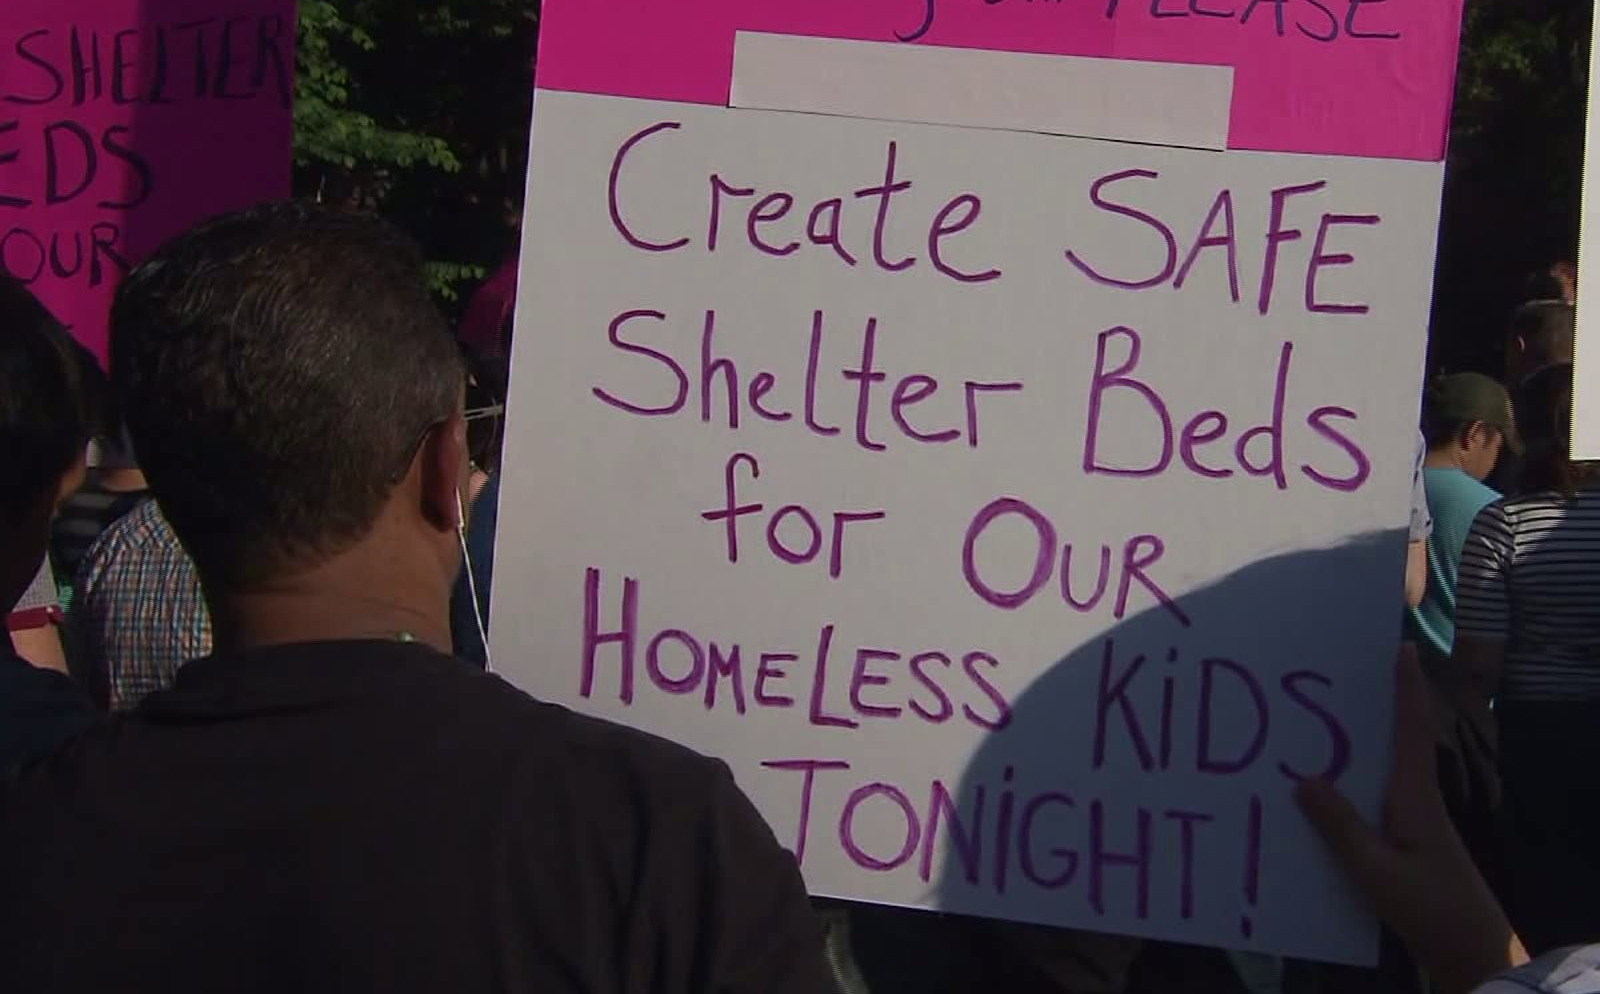 SHELTER
EDS
OUR
PLEASE
Create SAFE
Shelter Beds
for OUR
HOMELESS KiDS
TONiGHT!